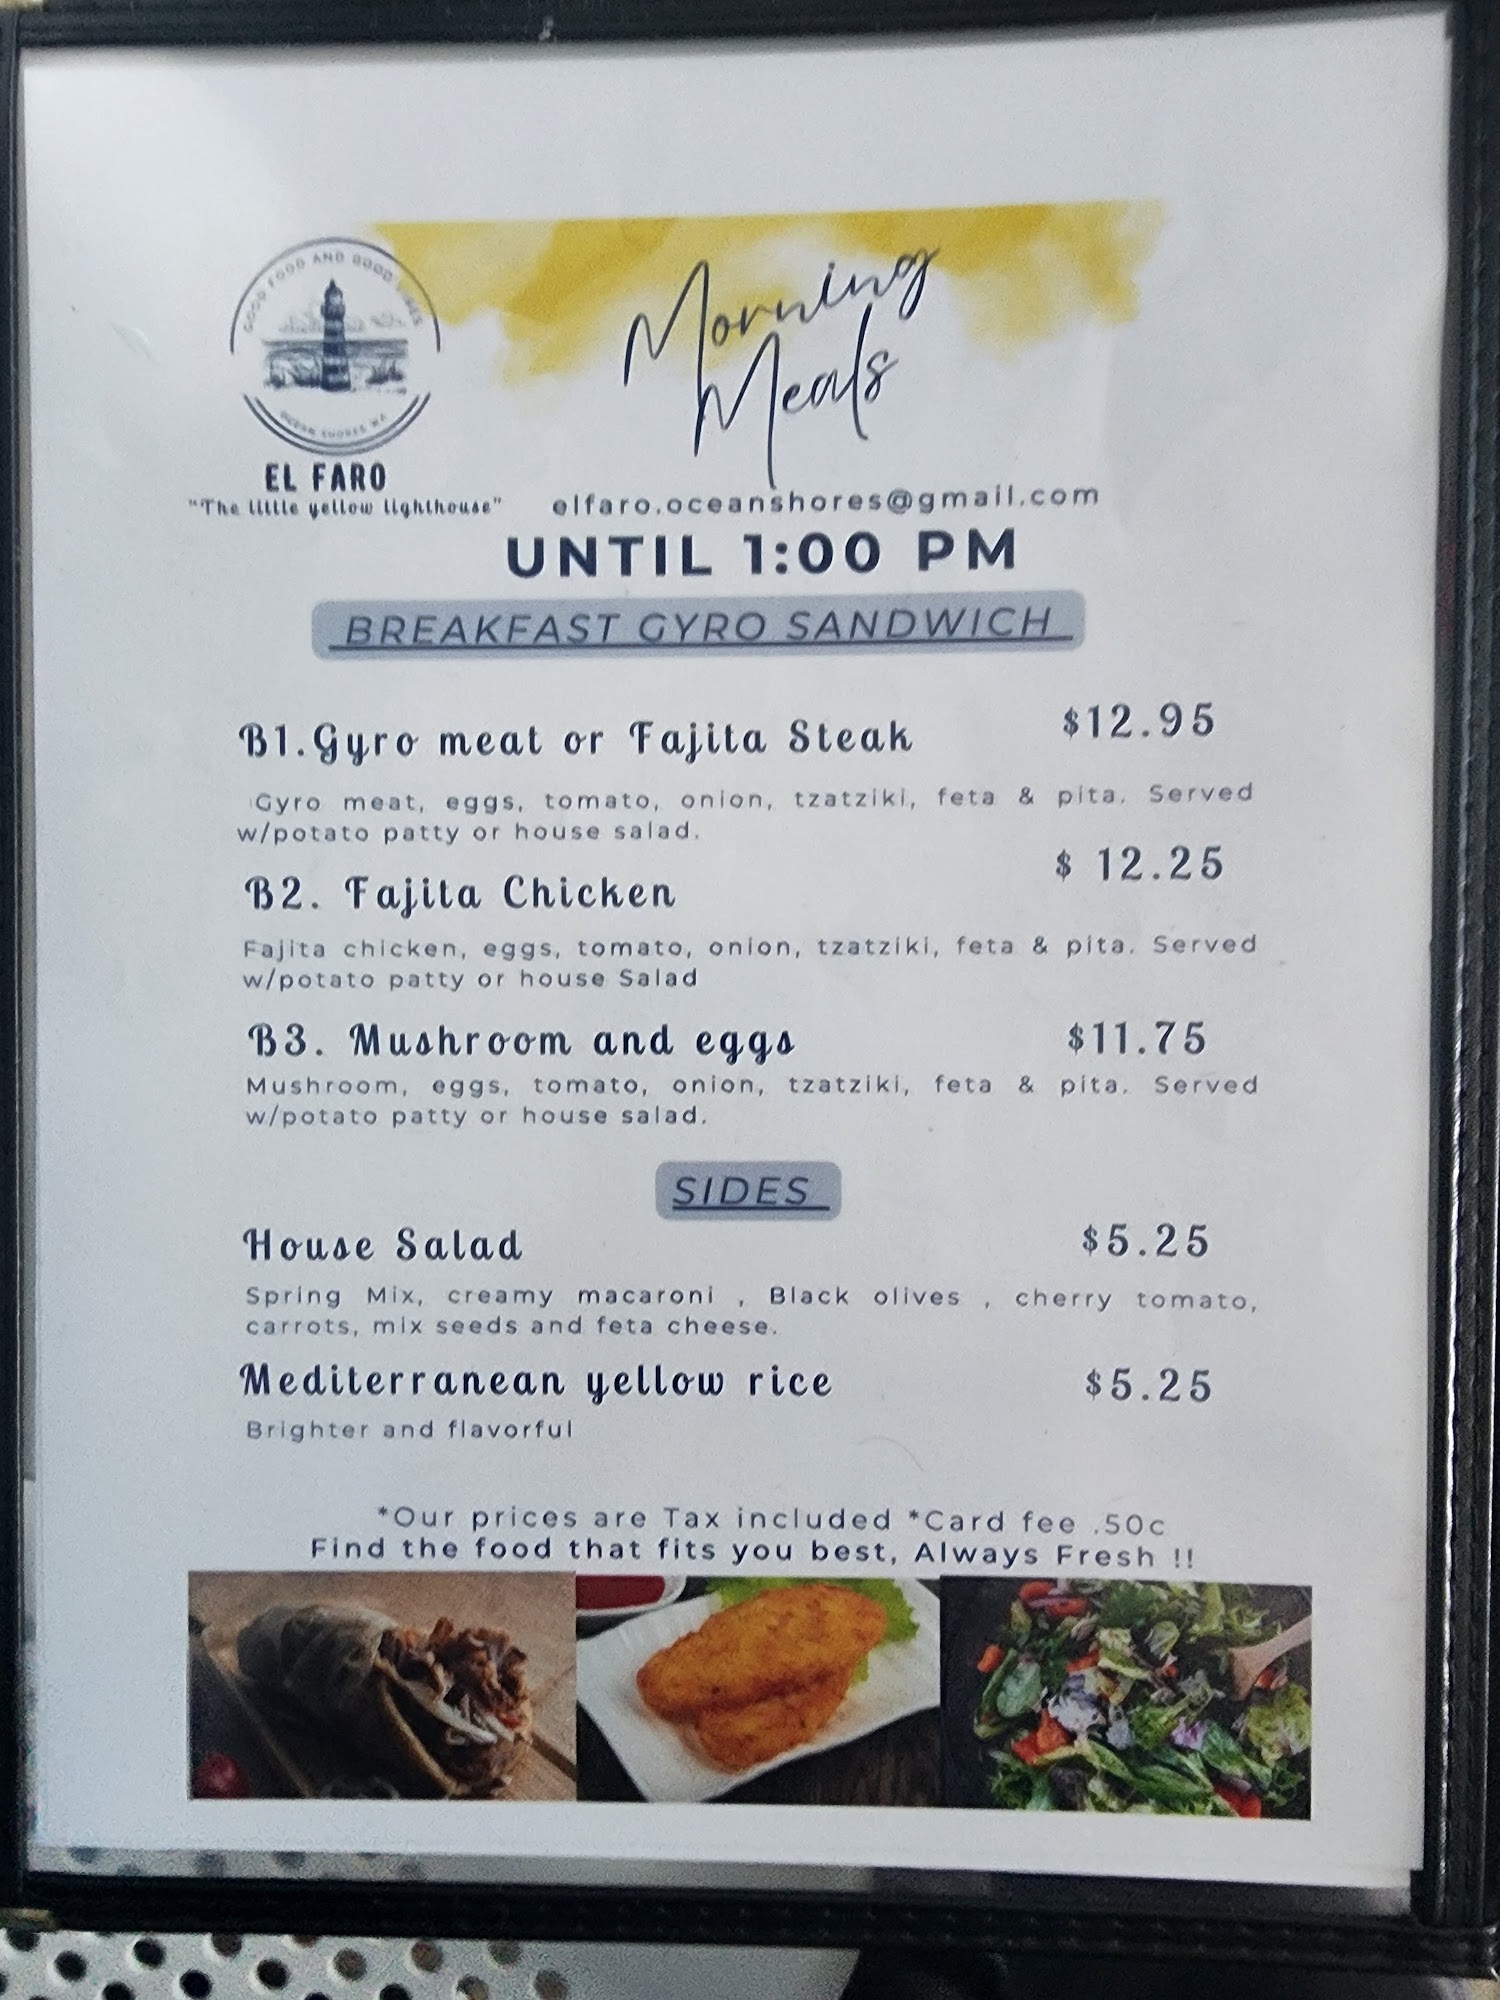 GOOD FOOD AND GOOD VIBES
OCEAN SHORES WA
EL FARO
"The little yellow lighthouse"
Morning
Meals
elfaro.oceanshores@gmail.com
UNTIL 1:00 PM
BREAKFAST GYRO SANDWICH
B1.Gyro meat or Fajita Steak $12.95
Gyro meat, eggs, tomato, onion, tzatziki, feta & pita. Served
w/potato patty or house salad.
B2. Fajita Chicken $ 12.25
Fajita chicken, eggs, tomato, onion, tzatziki, feta & pita. Served
w/potato patty or house Salad
B3. Mushroom and eggs $11.75
Mushroom, eggs, tomato, onion, tzatziki, feta & pita. Served
w/potato patty or house salad.
SIDES
House Salad $5.25
Spring Mix, creamy macaroni , Black olives , cherry tomato,
carrots, mix seeds and feta cheese.
Mediterranean yellow rice $5.25
Brighter and flavorful
*Our prices are Tax included *Card fee .50c
Find the food that fits you best, Always Fresh !!